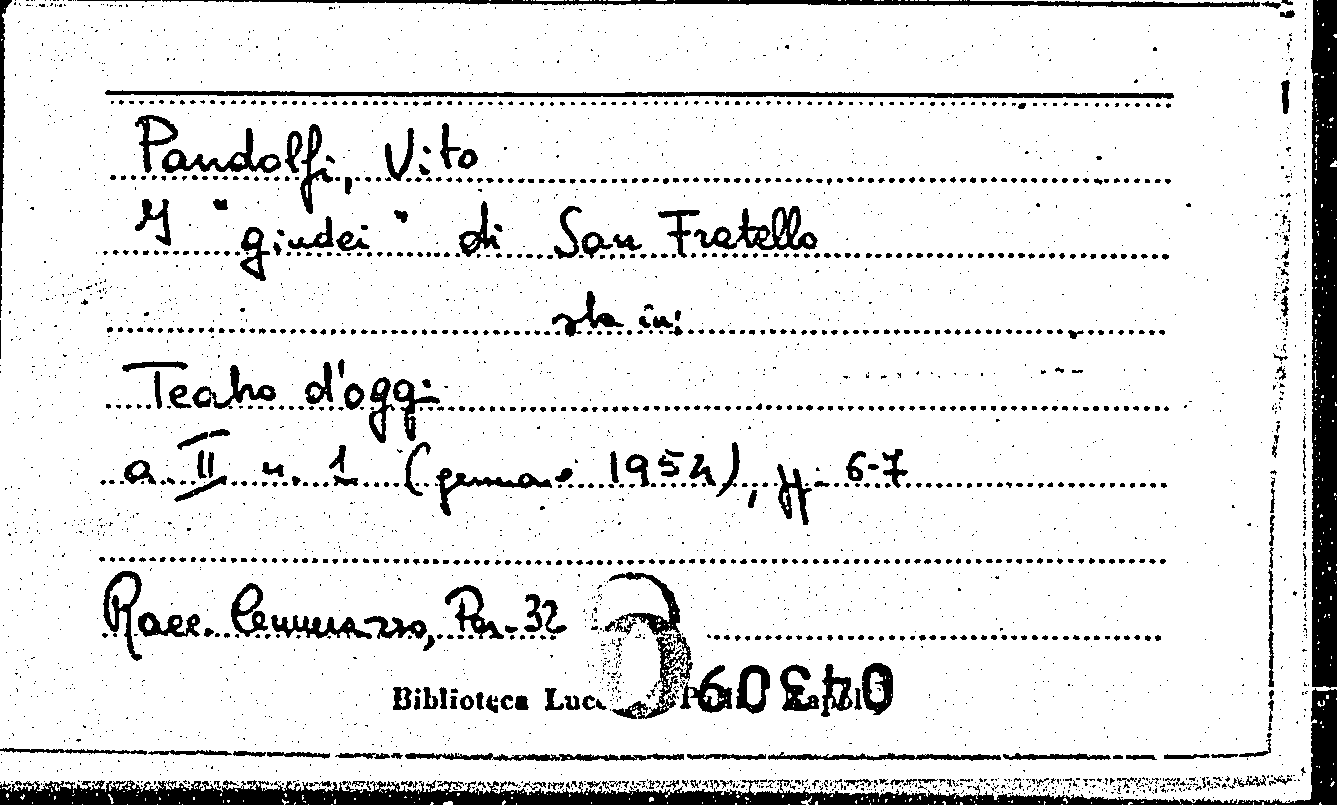 Pandolfi, Vito
I "giudei" di San Fratello
sta in:
Teatro d'oggi
a. II n. 1 (gennaio 1954), pp. 6-7
Racc. Cennerazzo, Par. 32
Biblioteca Lucchesi Palli Napoli
04309